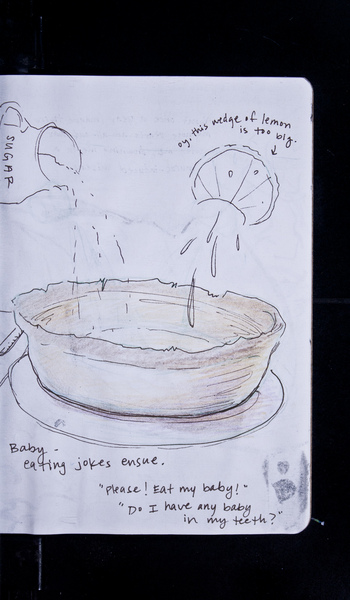 oy, this wedge of lemon
is too big.
SUGAR
Baby-
eating jokes ensue.
"Please! Eat my baby!"
"Do I have any baby
in my teeth?"